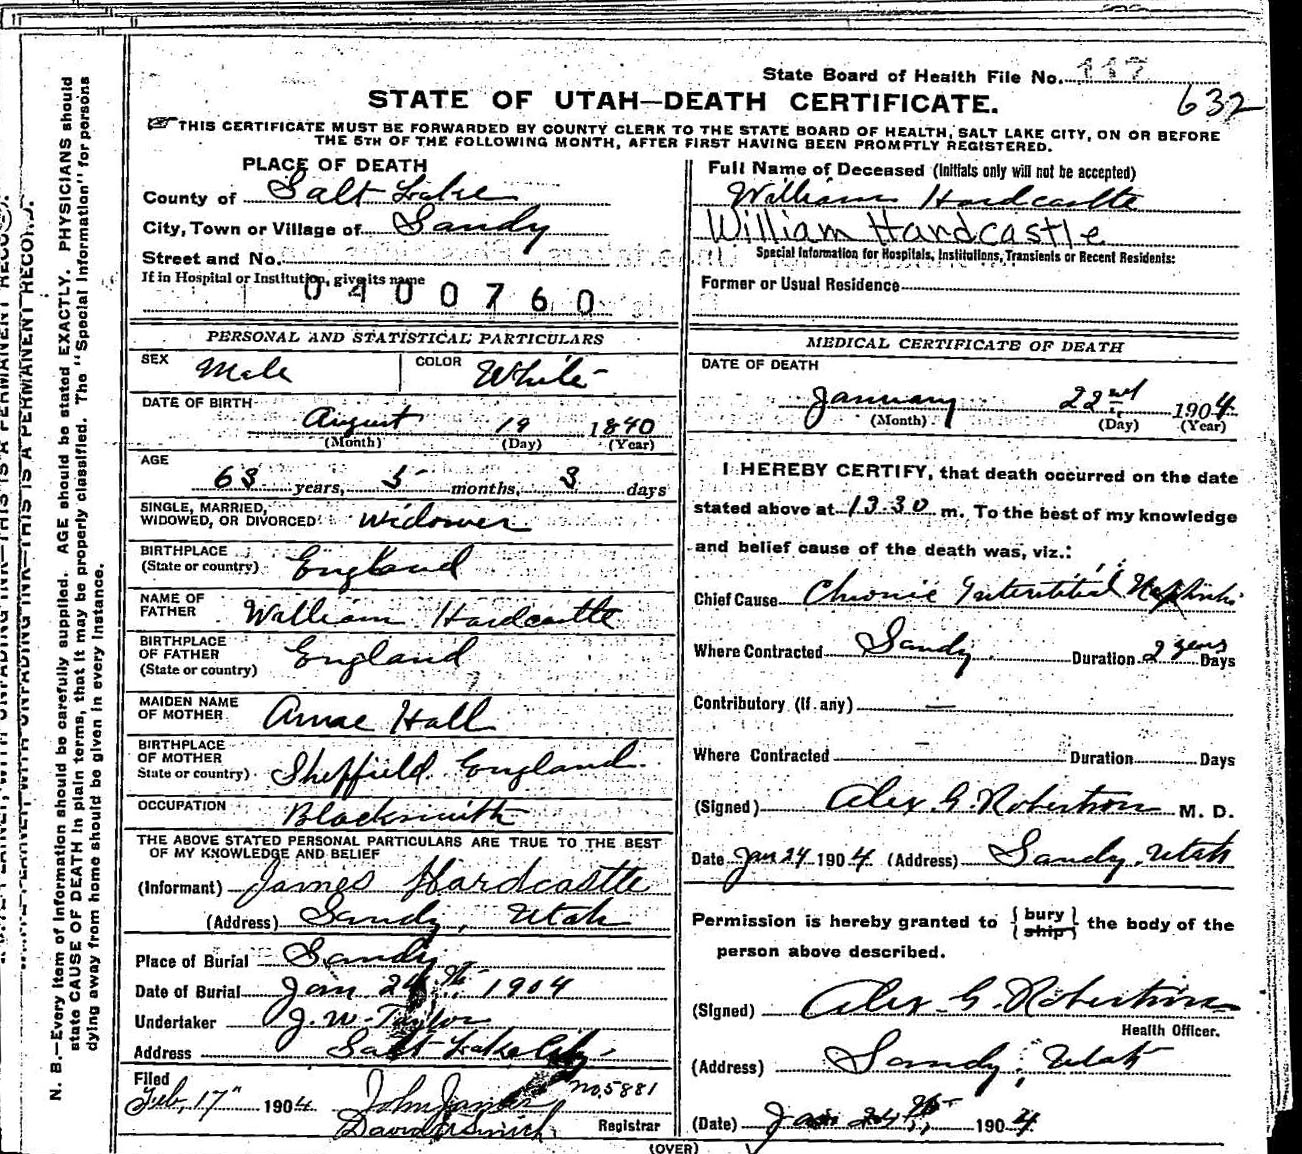 State Board of Health File No. 117
632
STATE OF UTAH—DEATH CERTIFICATE.
THIS CERTIFICATE MUST BE FORWARDED BY COUNTY CLERK TO THE STATE BOARD OF HEALTH, SALT LAKE CITY, ON OR BEFORE
THE 5TH OF THE FOLLOWING MONTH, AFTER FIRST HAVING BEEN PROMPTLY REGISTERED.
PLACE OF DEATH
County of Salt Lake
City, Town or Village of Sandy
Street and No.
If in Hospital or Institution, give its name
0400760
Full Name of Deceased (Initials only will not be accepted)
William Hardcastle
William Hardcastle
Special Information for Hospitals, Institutions, Transients or Recent Residents:
Former or Usual Residence
PERSONAL AND STATISTICAL PARTICULARS
SEX Male COLOR White
DATE OF BIRTH
August 19 1840
(Month) (Day) (Year)
AGE
63 years, 5 months, 3 days
SINGLE, MARRIED,
WIDOWED, OR DIVORCED Widower
BIRTHPLACE
(State or country) England
NAME OF
FATHER William Hardcastle
BIRTHPLACE
OF FATHER
(State or country) England
MAIDEN NAME
OF MOTHER Annae Hall
BIRTHPLACE
OF MOTHER
State or country) Sheffield England
OCCUPATION Blacksmith
THE ABOVE STATED PERSONAL PARTICULARS ARE TRUE TO THE BEST
OF MY KNOWLEDGE AND BELIEF
(Informant) James Hardcastle
(Address) Sandy, Utah
Place of Burial Sandy
Date of Burial Jan 24th 1904
Undertaker J. W. Taylor
Address Salt Lake City
Filed
Feb, 17" 1904 John James No, 5881
Registrar
MEDICAL CERTIFICATE OF DEATH
DATE OF DEATH
January 22nd 1904
(Month) (Day) (Year)
I HEREBY CERTIFY, that death occurred on the date
stated above at 13.30 m. To the best of my knowledge
and belief cause of the death was, viz.:
Chief Cause Chronic Interstitial Nephritis
Where Contracted Sandy Duration 2 years Days
Contributory (If any) —
Where Contracted — Duration Days
(Signed) Alex G. Robertson M. D.
Date Jan 24 1904 (Address) Sandy, Utah
Permission is hereby granted to { bury ship } the body of the
person above described.
(Signed) Alex. G. Robertson
Health Officer.
(Address) Sandy, Utah
(Date) Jan 24th 1904
(OVER)
N. B.—Every item of information should be carefully supplied. AGE should be stated EXACTLY. PHYSICIANS should
state CAUSE OF DEATH in plain terms, that it may be properly classified. The "Special Information" for persons
dying away from home should be given in every instance.
THIS IS A PERMANENT RECORD.